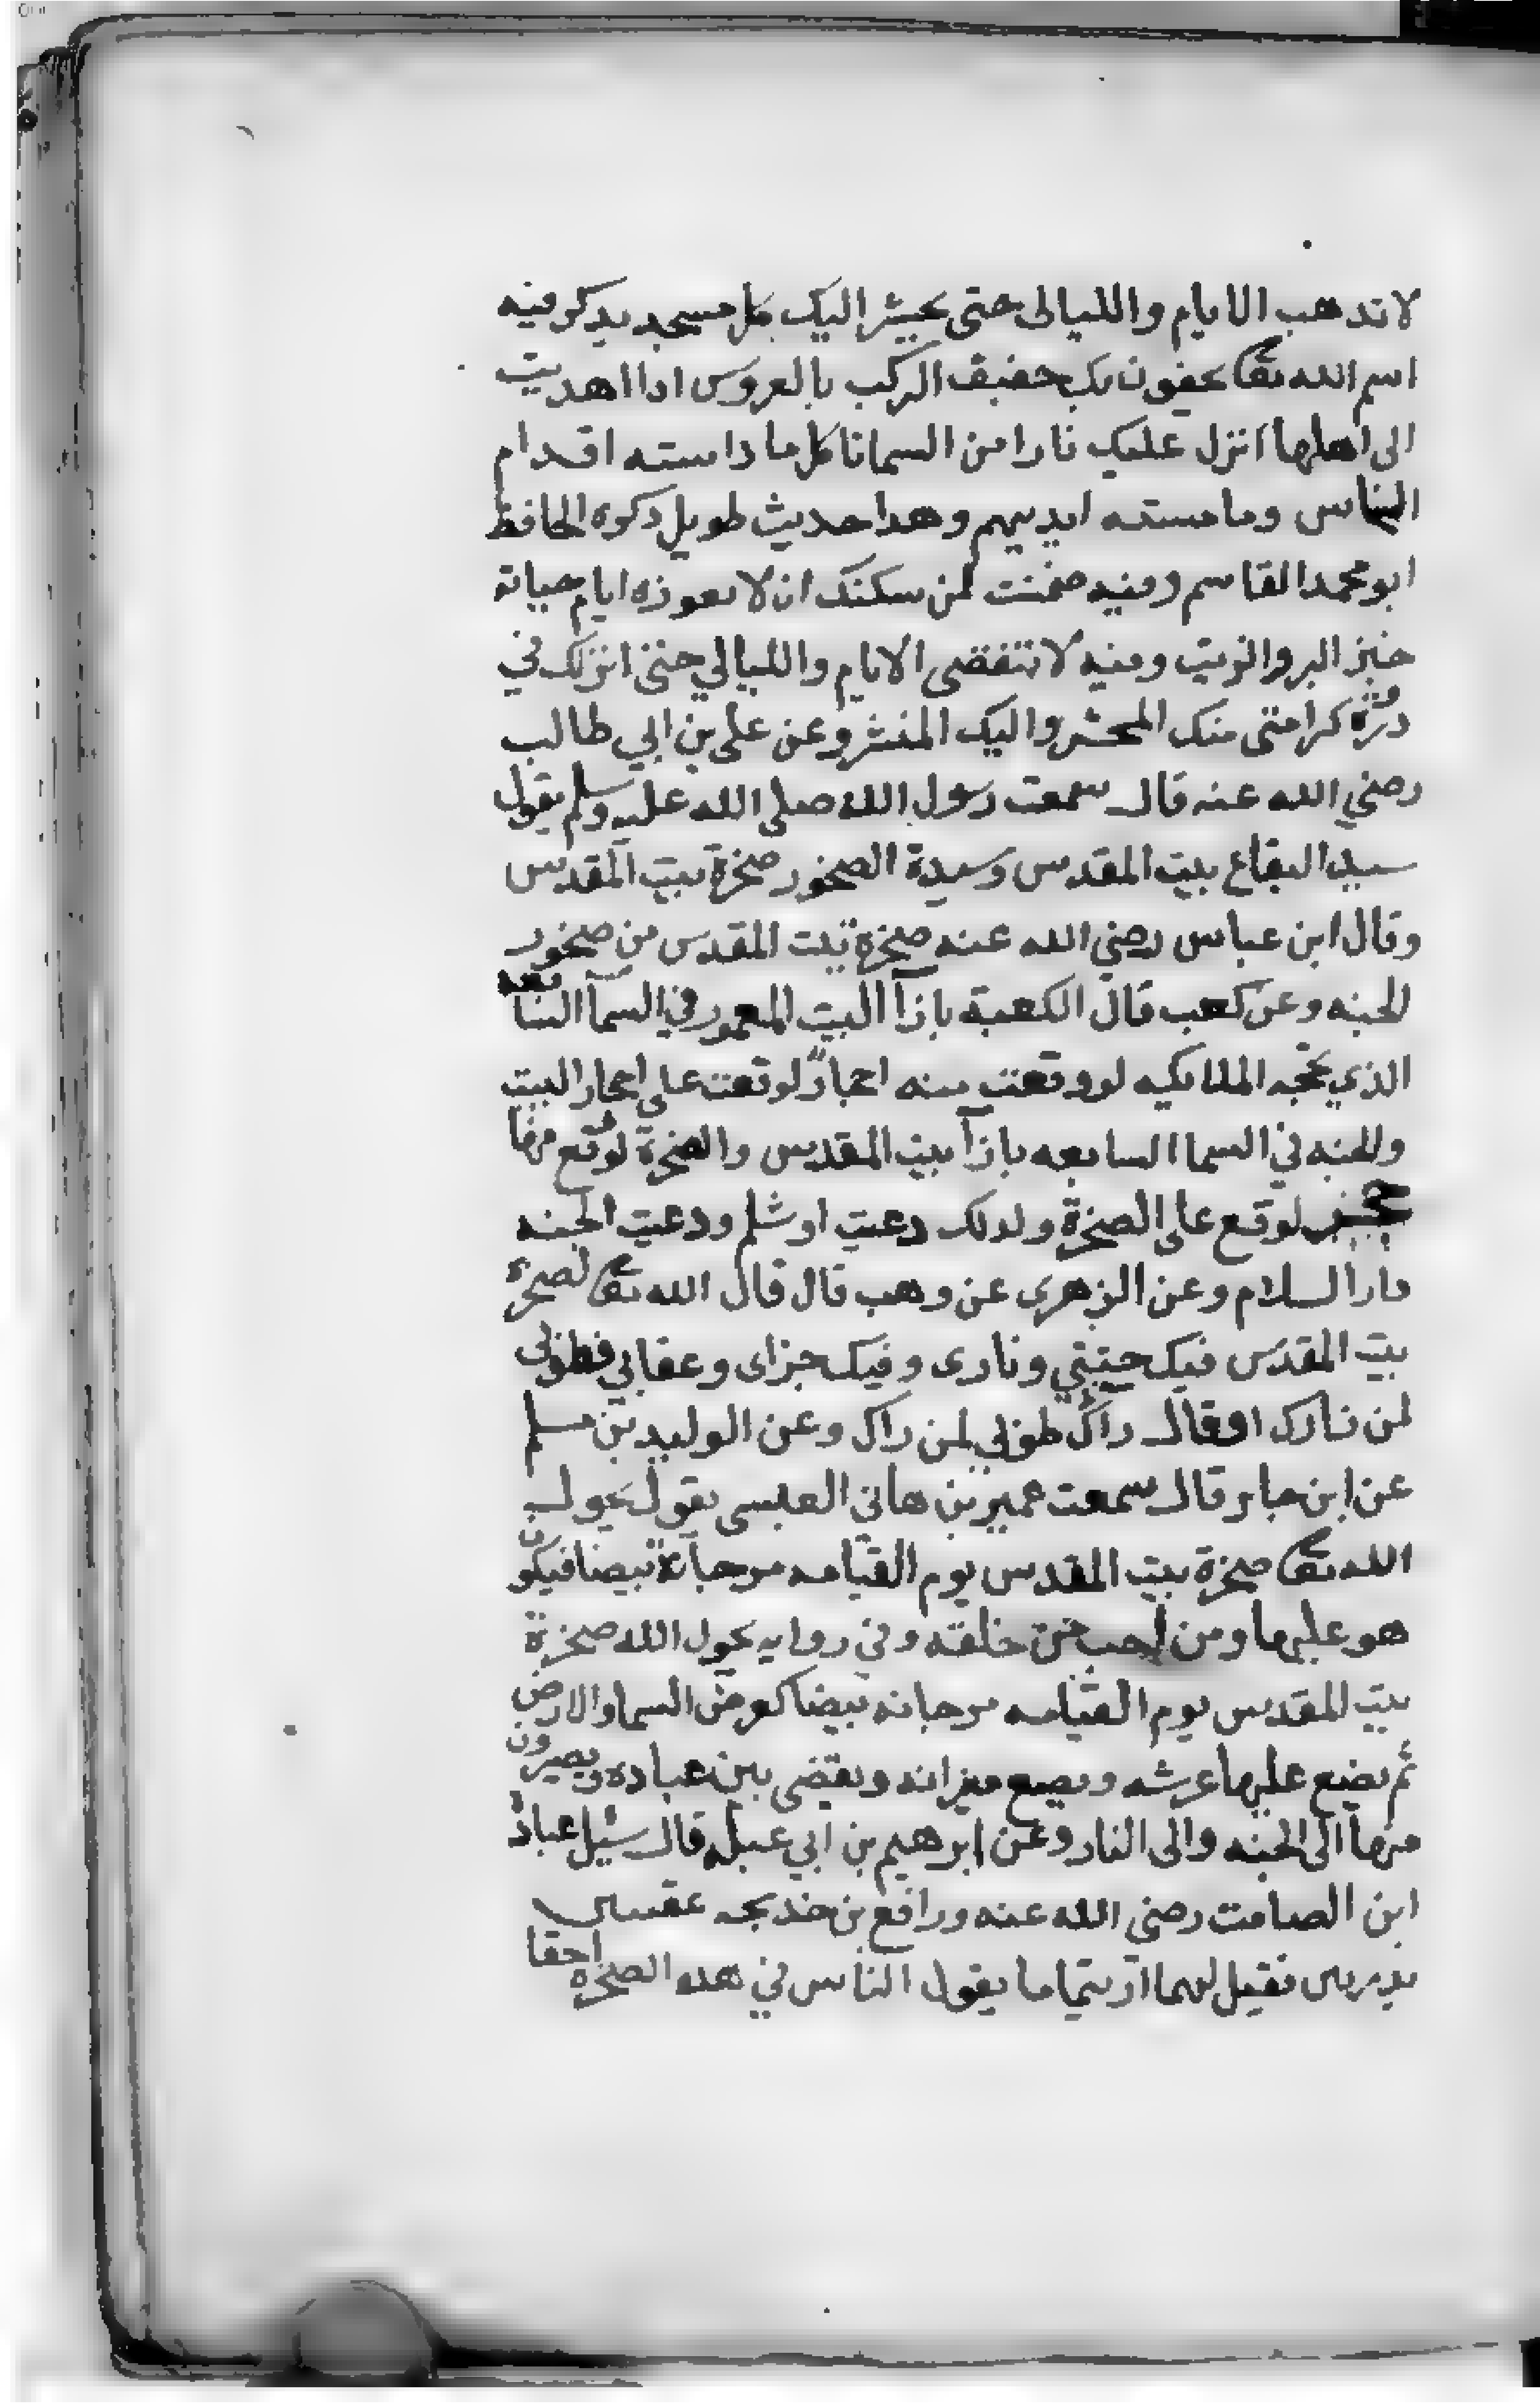 لا تدهب الايام والليالى حتى يحشر اليك كل مسجد يدكر فيه
اسم الله تعا يحفون بك حفيف الركب بالعروس ادا اهديت
الى اهلها انزل عليك نارا من السما تاكل ما داسته اقدام
الناس وما مسته ايديهم وهدا حديث طويل دكره الحافظ
ابو محمد القاسم وفيه ضمنت لمن سكنك ان لا يعوزه ايام حياته
خبز البر والزيت وفيه لا تنقضى الايام والليالي حتى انزلك في
دروة كرامتى منك المحشر واليك المنشر وعن على بن ابي طالب
رضي الله عنه قال سمعت رسول الله صلى الله عليه وسلم يقول
سيد البقاع بيت المقدس وسيدة الصخور صخرة بيت المقدس
وقال ابن عباس رضي الله عنه صخرة بيت المقدس من صخور
الجنه وعن كعب قال الكعبة بازآ البيت المعمور في السمآ السابعه
الذي يحجه الملايكيه لو وقعت منه احجار لوقعت على احجار البيت
والجنه في السما السابعه بازآ بيت المقدس والصخرة لو وقع منها
حجر لوقع على الصخرة ولدلك دعيت اوشلم ودعيت الجنه
دار السلام وعن الزهرى عن وهب قال قال الله تعا لصخرة
بيت المقدس فيك جنتي ونارى وفيك جزاى وعقابي فطوبى
لمن زارك او قال راك طوبي لمن راك وعن الوليد بن مسلم
عن ابن جابر قال سمعت عمير بن هاني العبسى يقول يحول
الله تعا صخرة بيت المقدس يوم القيامه مرجانة بيضا فيكون
هو عليها ومن احب من خلقه وفي روايه يحول الله صخرة
بيت المقدس يوم القيامه مرجانه بيضا كعرض السما والارض
ثم يضع عليها عرشه ويضع ميزانه ويقضى بين عباده ويصيرون
منها الى الجنه والى النار وعن ابرهيم بن ابي عبله قال سئيل عباد
ابن الصامت رضي الله عنه ورافع بن خديجه عقبيين
بدريين فقيل لهما ارايتما ما يقول الناس في هده الصخره احقا